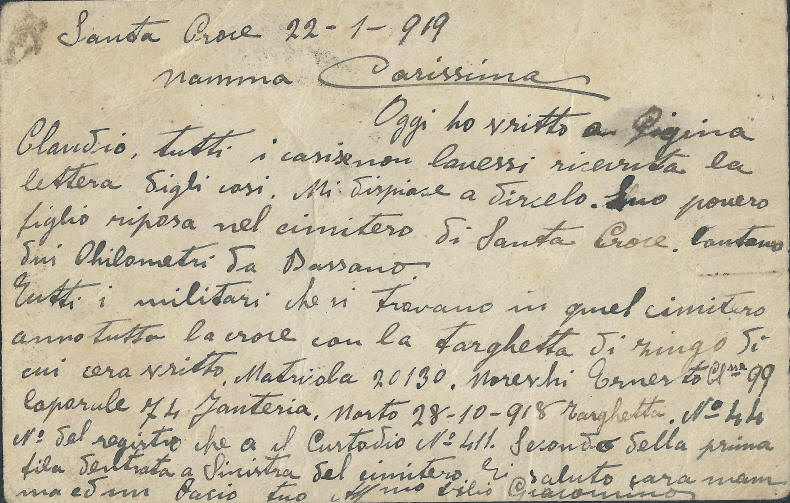 Santa Croce 22-1-919
Mamma Carissima
Oggi ho scritto a Gigina
Claudio, tutti i casi se non lavessi ricevuta la
lettera digli cosi. Mi dispiace a dircelo. Suo povero
figlio riposa nel cimitero di Santa Croce. lontano
dui Chilometri da Bassano.
Tutti i militari che si trovano in quel cimitero
anno tutta la croce con la targhetta di zingo di
cui cera scritto. Matricola 20130. Moreschi Ernesto Clssa 99
Caporale 74 Fanteria. Morto 28-10-918 targhetta. Nº 44
Nº del registro che a il Custodio Nº 411. Secondo della prima
fila dentrata a Sinistra del cimitero. Ti saluto cara mam
ma ed un Bacio tuo Affmo Filio Giacomino